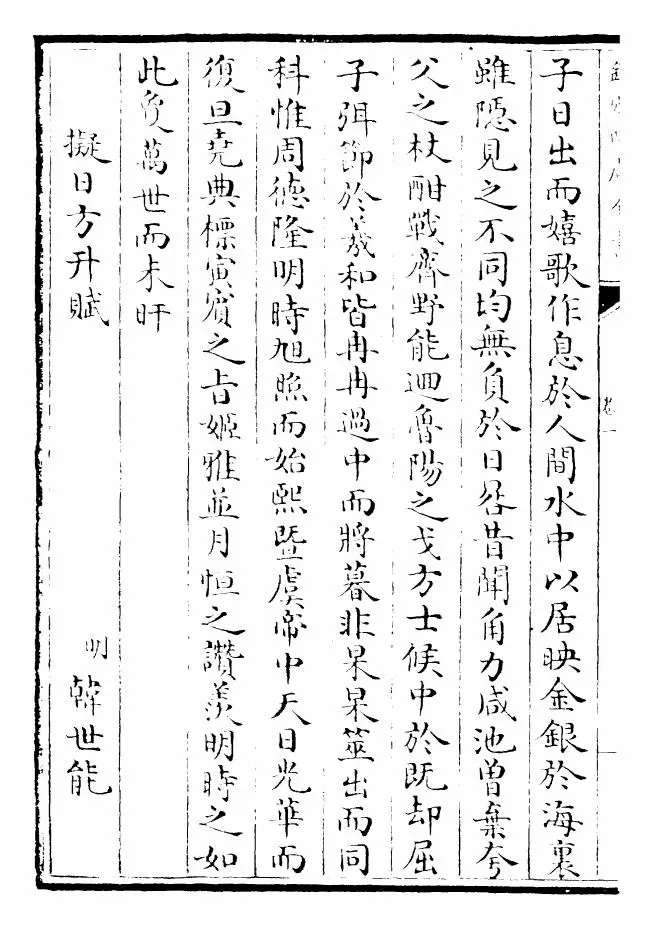 子日出而嬉歌作息於人間水中以居映金銀於海裏
雖隠見之不同均無負於日晷昔聞角力咸池曽棄夸
父之杖酣戰齊野能迴魯陽之戈方士候中於既却屈
子弭節於羲和皆冉冉過中而將暮非杲杲筮出而同
科惟周徳隆明時旭照而始熙暨虞帝中天日光華而
復旦堯典標寅賔之㫖姬雅並月恒之讚羨明時之如
此𠮓萬世而未旰
擬日方升賦
明 韓世能
卷一